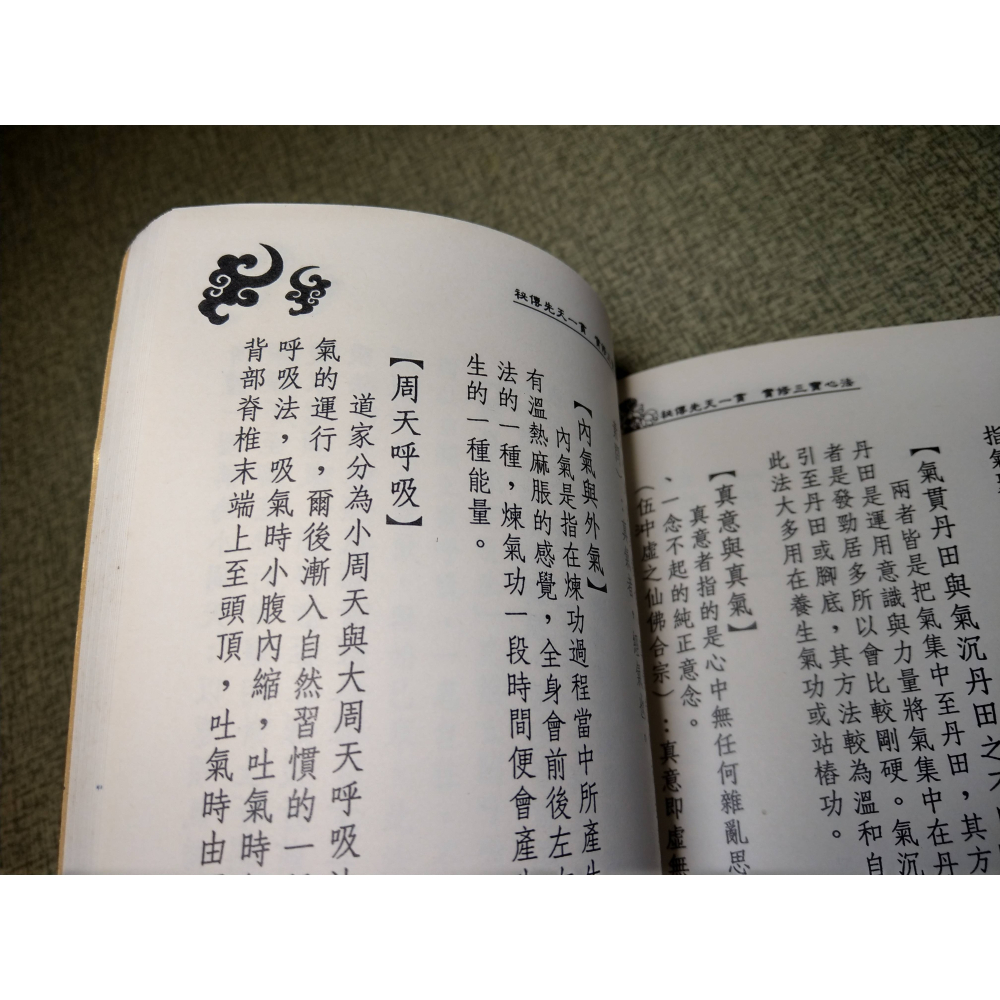 祕傳先天一貫 實修三寶心法
指氣
【氣貫丹田與氣沉丹田之不
兩者皆是把氣集中至丹田，其方
丹田是運用意識與力量將氣集中在丹
者是發勁居多所以會比較剛硬。氣沉
引至丹田或腳底，其方法較為溫和自
此法大多用在養生氣功或站樁功。
【真意與真氣】
真意者指的是心中無任何雜亂思
、一念不起的純正意念。
（伍中虛之仙佛合宗）：真意即虛無
祕傳先天一貫
【內氣與外氣】
內氣是指在煉功過程當中所產生
有溫熱麻脹的感覺，全身會前後左右
法的一種，煉氣功一段時間便會產
生的一種能量。
【周天呼吸】
道家分為小周天與大周天呼吸法
氣的運行，爾後漸入自然習慣的一
呼吸法，吸氣時小腹內縮，吐氣時
背部脊椎末端上至頭頂，吐氣時由